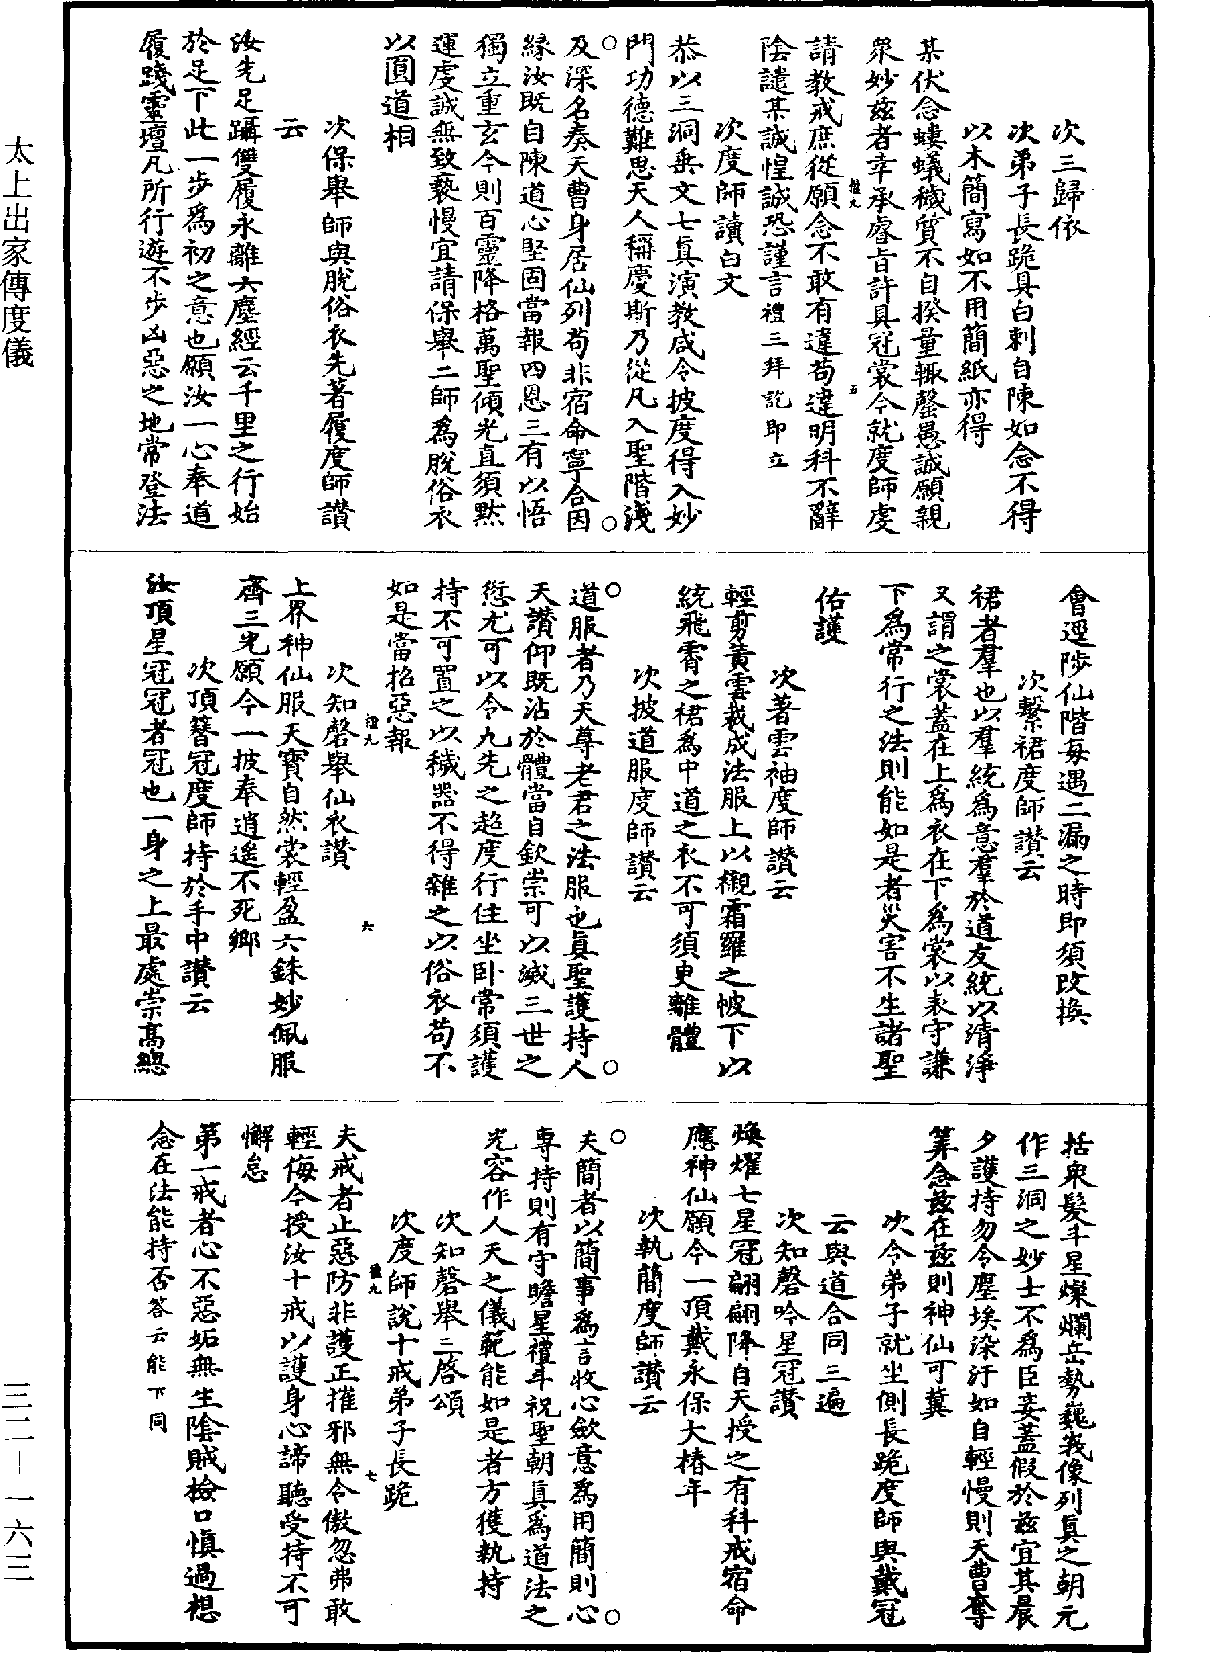 太上出家傳度儀
次三歸依
次弟子長跪具白刺自陳如念不得
以木簡寫如不用簡紙亦得
某伏念螻蟻穢質不自揆量輒罄愚誠願親
衆妙茲者幸承睿旨許具冠裳今就度師虔
請教戒庶從願念不敢有違苟違明科不辭
陰譴某誠惶誠恐謹言禮三拜訖即立
次度師讀白文
恭以三洞垂文七真演教咸令披度得入妙
門功德難思天人稱慶斯乃從凡入聖階淺
及深名奏天曹身居仙列苟非宿命寧合因
緣汝既自陳道心堅固當報四恩三有以悟
獨立重玄今則百靈降格萬聖傾光直須默
運虔誠無致褻慢宜請保舉二師爲脫俗衣
以圓道相
次保舉師與脫俗衣先著履度師讚
云
汝先足躡雙履永離六塵經云千里之行始
於足下此一步爲初之意也願汝一心奉道
履踐靈壇凡所行遊不步凶惡之地常登法
會逕陟仙階每遇二漏之時即須改換
次繫裙度師讚云
裙者羣也以羣統爲意羣於道友統以清淨
又謂之裳蓋在上爲衣在下爲裳以表守謙
下爲常行之法則能如是者災害不生諸聖
佑護
次著雲袖度師讚云
輕剪黃雲裁成法服上以襯霜羅之帔下以
統飛霄之裙爲中道之衣不可須臾離體
次披道服度師讚云
道服者乃天尊老君之法服也真聖護持人
天讚仰既沾於體當自欽崇可以滅三世之
愆尤可以令九先之超度行住坐卧常須護
持不可置之以穢器不得雜之以俗衣苟不
如是當招惡報
六
次知磬舉仙衣讚
上界神仙服天寶自然裳輕盈六銖妙佩服
齊三光願今一披奉逍遙不死鄉
次頂簪冠度師持於手中讚云
汝頂星冠冠者冠也一身之上最處崇高總
括衆髮斗星燦爛岳勢巍峩像列真之朝元
作三洞之妙士不爲臣妾蓋假於茲宜其晨
夕護持勿令塵埃染汙如自輕慢則天曹奪
筭念茲在茲則神仙可冀
次令弟子就坐側長跪度師與戴冠
云與道合同三遍
次知磬吟星冠讚
煥燿七星冠翩翩降自天授之有科戒宿命
應神仙願今一頂戴永保大椿年
次執簡度師讚云
夫簡者以簡事爲言收心歛意爲用簡則心
專持則有守瞻星禮斗祝聖朝真爲道法之
光容作人天之儀範能如是者方獲執持
次知磬舉三啓頌
次度師說十戒弟子長跪
七
夫戒者止惡防非護正摧邪無令傲忽弗敢
輕侮今授汝十戒以護身心諦聽受持不可
懈怠
第一戒者心不惡妬無生陰賊檢口慎過想
念在法能持否答云能下同
三二－一六三